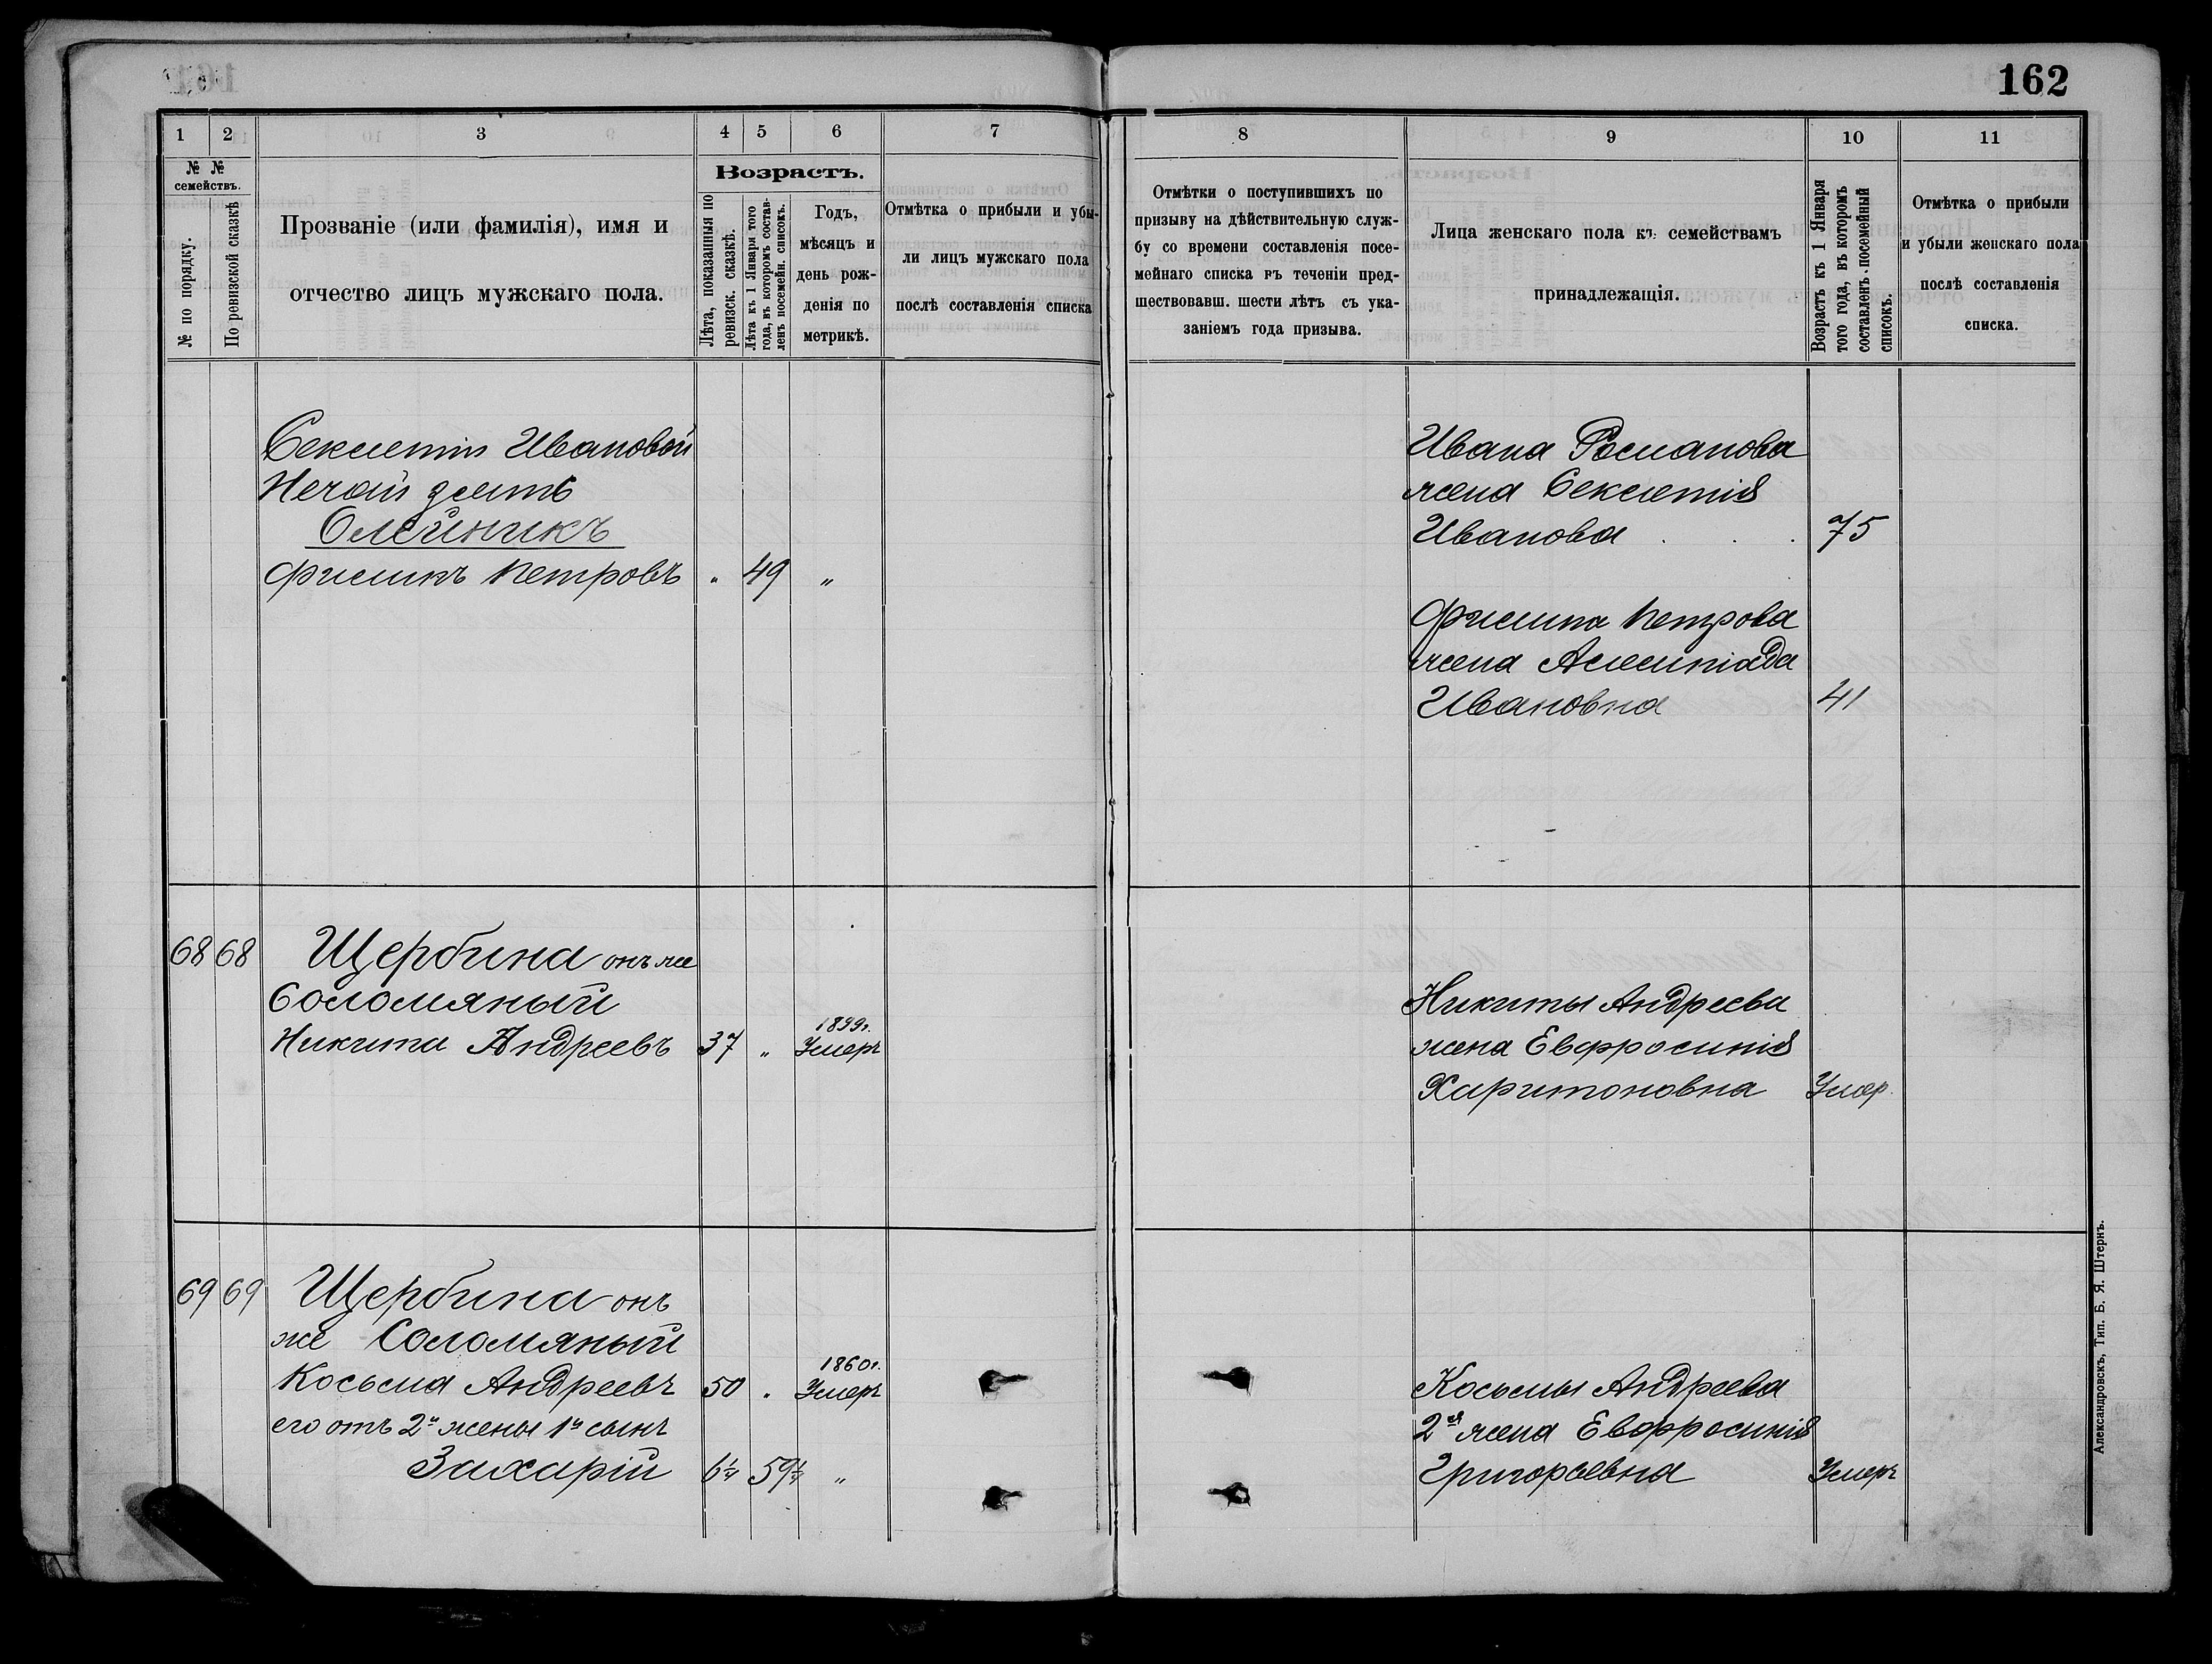 162
1 2 3 4 5 6 7
№ № семействъ.
№ по порядку.
По ревизской сказкѣ
Прозваніе (или фамилія), имя и
отчество лицъ мужскаго пола.
Возрастъ.
Лѣта, показанныя по
ревизск. сказкѣ.
Лѣта къ 1 Января того
года, въ которомъ состав-
ленъ посемейн. списокъ.
Годъ,
мѣсяцъ и
день рож-
денія по
метрикѣ.
Отмѣтка о прибыли и убы-
ли лицъ мужскаго пола
послѣ составленія списка
Секлетіи Ивановой
Нечай зять
Олейникъ
Филипъ Петровъ " 49 "
68 68 Щербина онъ же
Соломяный
1899г.
Никита Андреевъ 37 " Умеръ
69 69 Щербина онъ
же Соломяный
1860г.
Косьма Андреевъ 50 " Умеръ
его отъ 2й жены 1й сынъ
Захарій 6½ 59½ "
8 9 10 11
Отмѣтки о поступившихъ по
призыву на дѣйствительную служ-
бу со времени составленія посе-
мейнаго списка въ теченіи пред-
шествовавш. шести лѣтъ съ ука-
заніемъ года призыва.
Лица женскаго пола къ семействамъ
принадлежащія.
Возрастъ къ 1 Января
того года, въ которомъ
составленъ посемейный
списокъ.
Отмѣтка о прибыли
и убыли женскаго пола
послѣ составленія
списка.
Ивана Романова
жена Секлетія
Иванова . . . 75
Филипа Петрова
жена Аслипіада
Ивановна 41
Никиты Андреева
жена Евфросинія
Харитоновна Умер.
Косьмы Андреева
2я жена Евфросинія
Григорьевна Умеръ
Александровскъ, Тип. Б. Я. Штернъ.